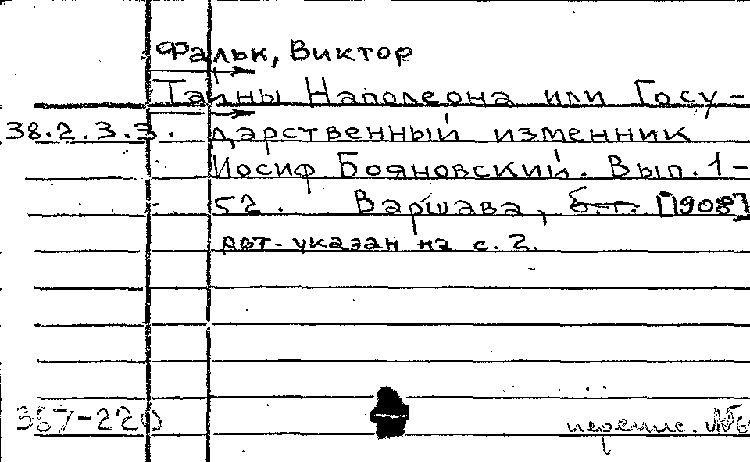 Фальк, Виктор
Тайны Наполеона или Госу-
38.2.3.3. дарственный изменник
Иосиф Бояновский. Вып. 1-
52. Варшава, б.г. [1908]
Авт. указан на с. 2.
367-220
перепис.